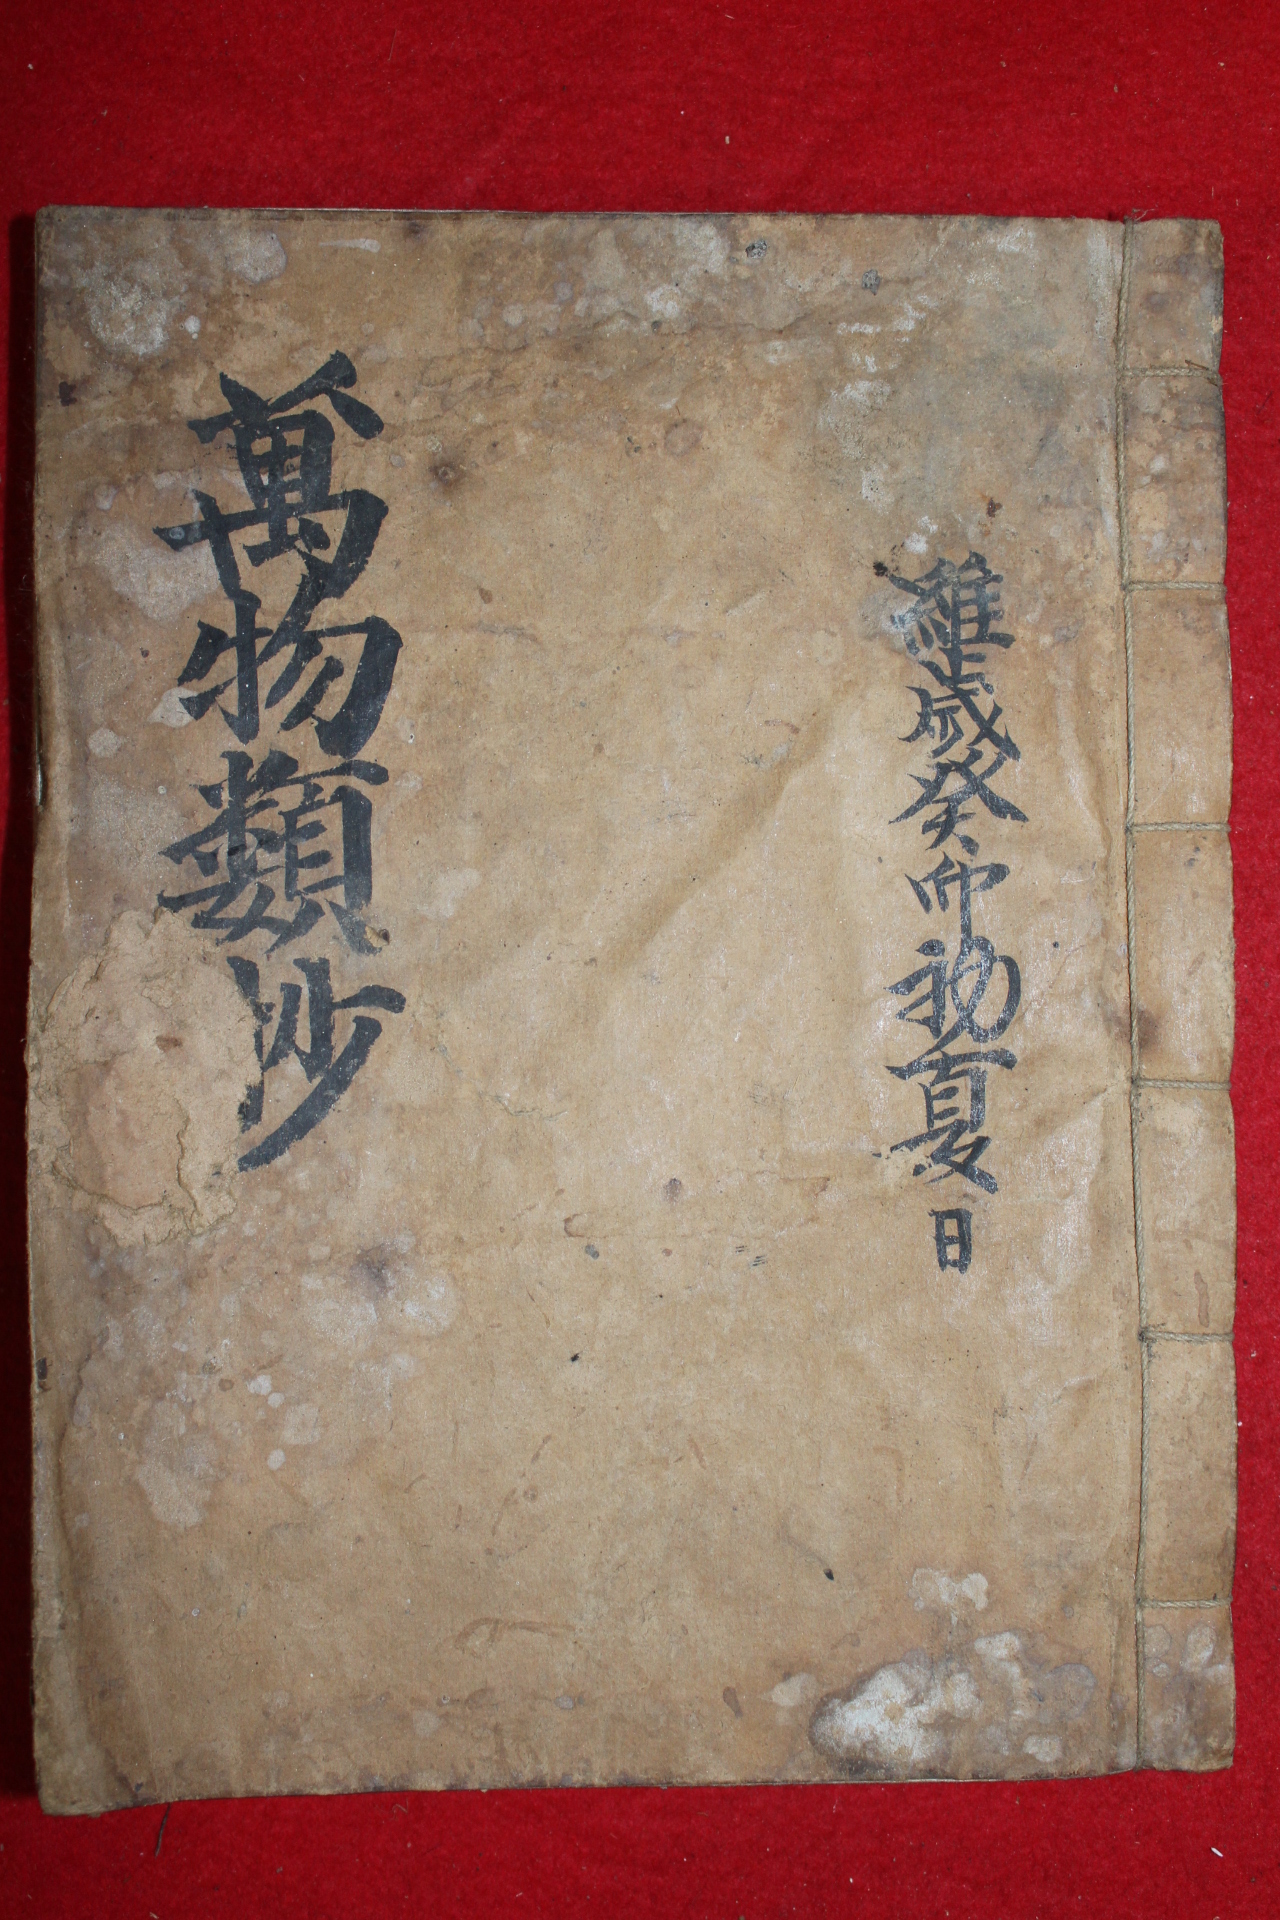 維歲癸卯初夏 日
萬物類抄